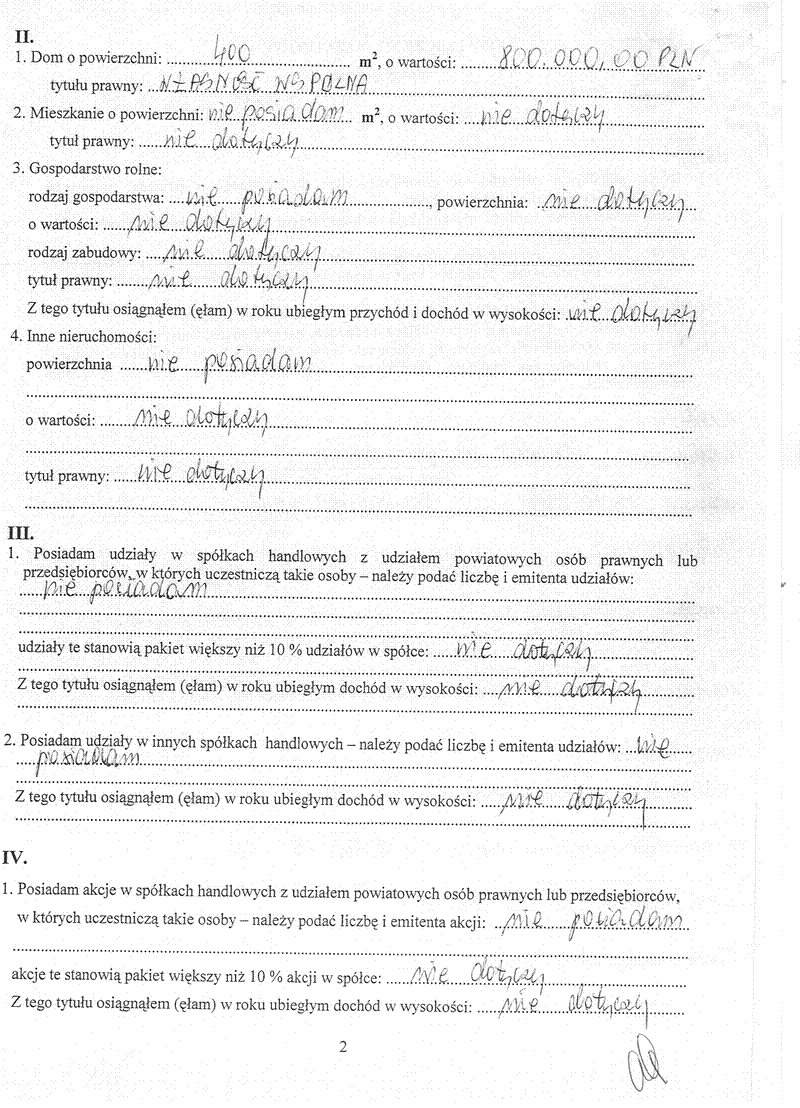 II.
1. Dom o powierzchni: 400 m², o wartości: 800.000,00 PLN
tytułu prawny: WŁASNOŚĆ WSPÓLNA
2. Mieszkanie o powierzchni: nie posiadam m², o wartości: nie dotyczy
tytuł prawny: nie dotyczy
3. Gospodarstwo rolne:
rodzaj gospodarstwa: nie posiadam, powierzchnia: nie dotyczy
o wartości: nie dotyczy
rodzaj zabudowy: nie dotyczy
tytuł prawny: nie dotyczy
Z tego tytułu osiągnąłem (ęłam) w roku ubiegłym przychód i dochód w wysokości: nie dotyczy
4. Inne nieruchomości:
powierzchnia nie posiadam
o wartości: nie dotyczy
tytuł prawny: nie dotyczy
III.
1. Posiadam udziały w spółkach handlowych z udziałem powiatowych osób prawnych lub
przedsiębiorców, w których uczestniczą takie osoby – należy podać liczbę i emitenta udziałów:
nie posiadam
udziały te stanowią pakiet większy niż 10 % udziałów w spółce: nie dotyczy
Z tego tytułu osiągnąłem (ęłam) w roku ubiegłym dochód w wysokości: nie dotyczy
2. Posiadam udziały w innych spółkach handlowych – należy podać liczbę i emitenta udziałów: nie
posiadam
Z tego tytułu osiągnąłem (ęłam) w roku ubiegłym dochód w wysokości: nie dotyczy
IV.
1. Posiadam akcje w spółkach handlowych z udziałem powiatowych osób prawnych lub przedsiębiorców,
w których uczestniczą takie osoby – należy podać liczbę i emitenta akcji: nie posiadam
akcje te stanowią pakiet większy niż 10 % akcji w spółce: nie dotyczy
Z tego tytułu osiągnąłem (ęłam) w roku ubiegłym dochód w wysokości: nie dotyczy
2